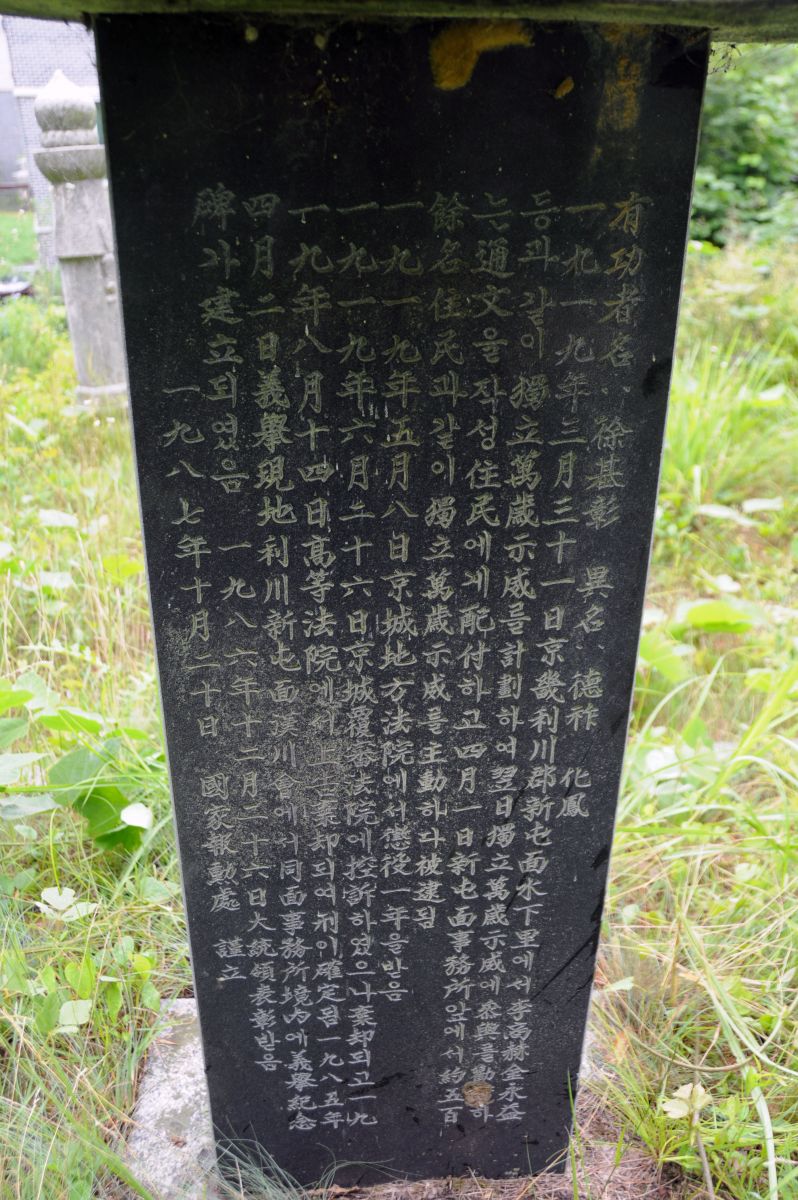 有功者名：徐基彰 異名：德祚 化鳳
一九一九年三月三十一日京畿利川郡新屯面水下里에서李尙赫金永益
등과같이獨立萬歲示威를計劃하여翌日獨立萬歲示威에參與를勸하
는通文을작성住民에게配付하고四月一日新屯面事務所앞에서約五百
餘名住民과같이獨立萬歲示威를主動하다被逮됨
一九一九年五月八日京城地方法院에서懲役一年을받음
一九一九年六月二十六日京城覆審法院에控訴하였으나棄却되고一九
一九年八月十四日高等法院에서上告棄却되여刑이確定됨一九八五年
四月二日義擧現地利川新屯面漢川會에서同面事務所境內에義擧紀念
碑가建立되였음 一九八六年十二月二十六日大統領表彰받음
一九八七年十月二十日 國家報勳處 謹立